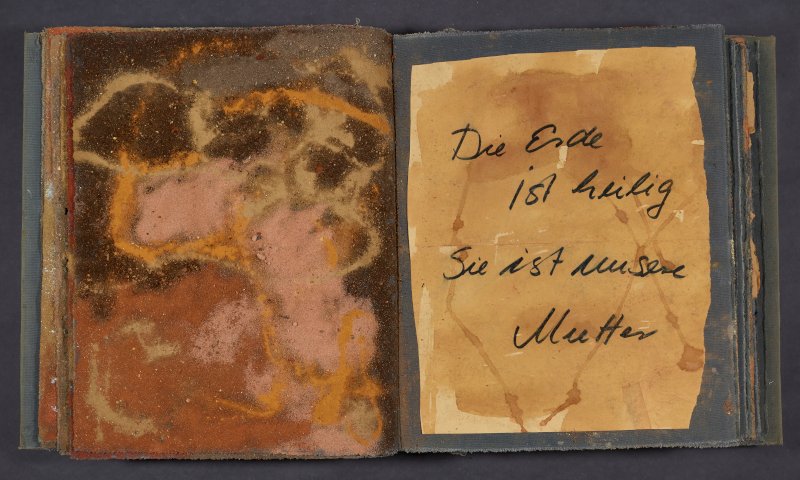 Die Erde
ist heilig
Sie ist unsere
Mutter